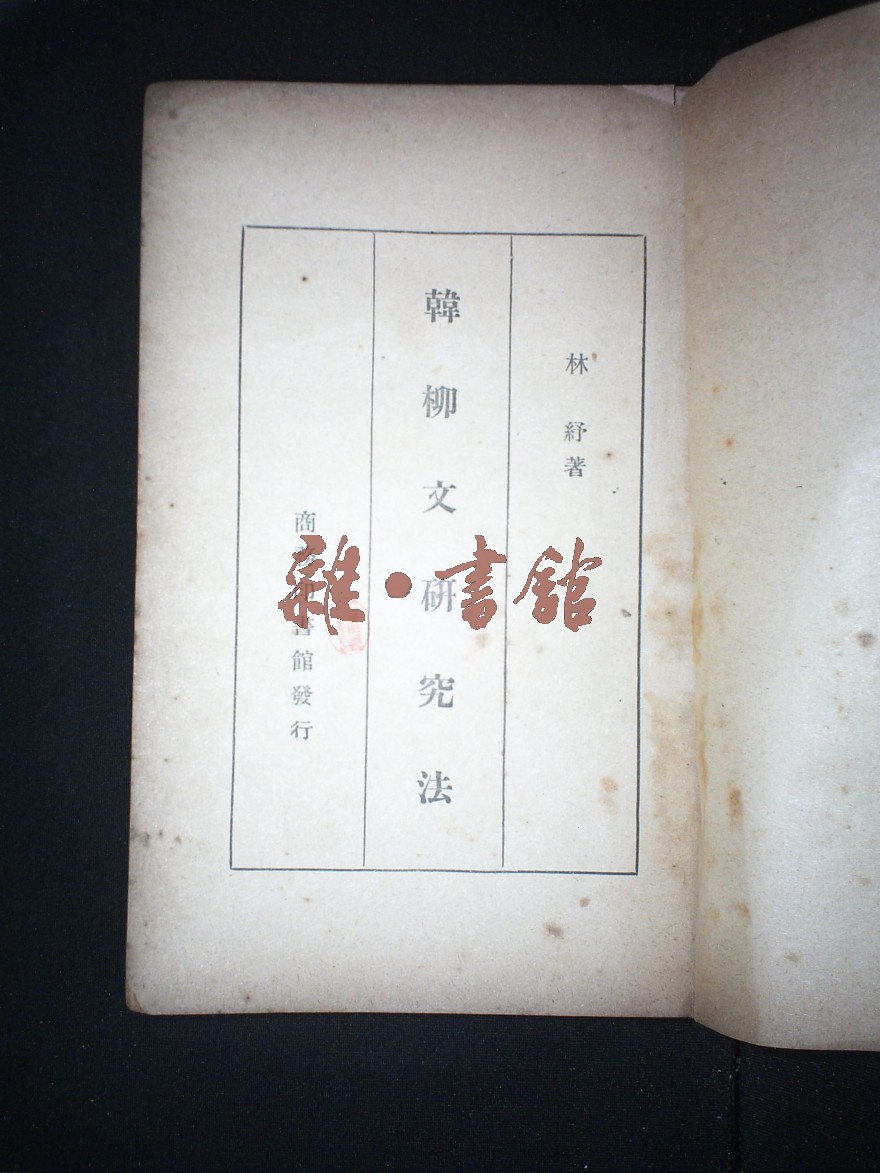 林紓著
韓柳文研究法
商務印書館發行
雜·書館